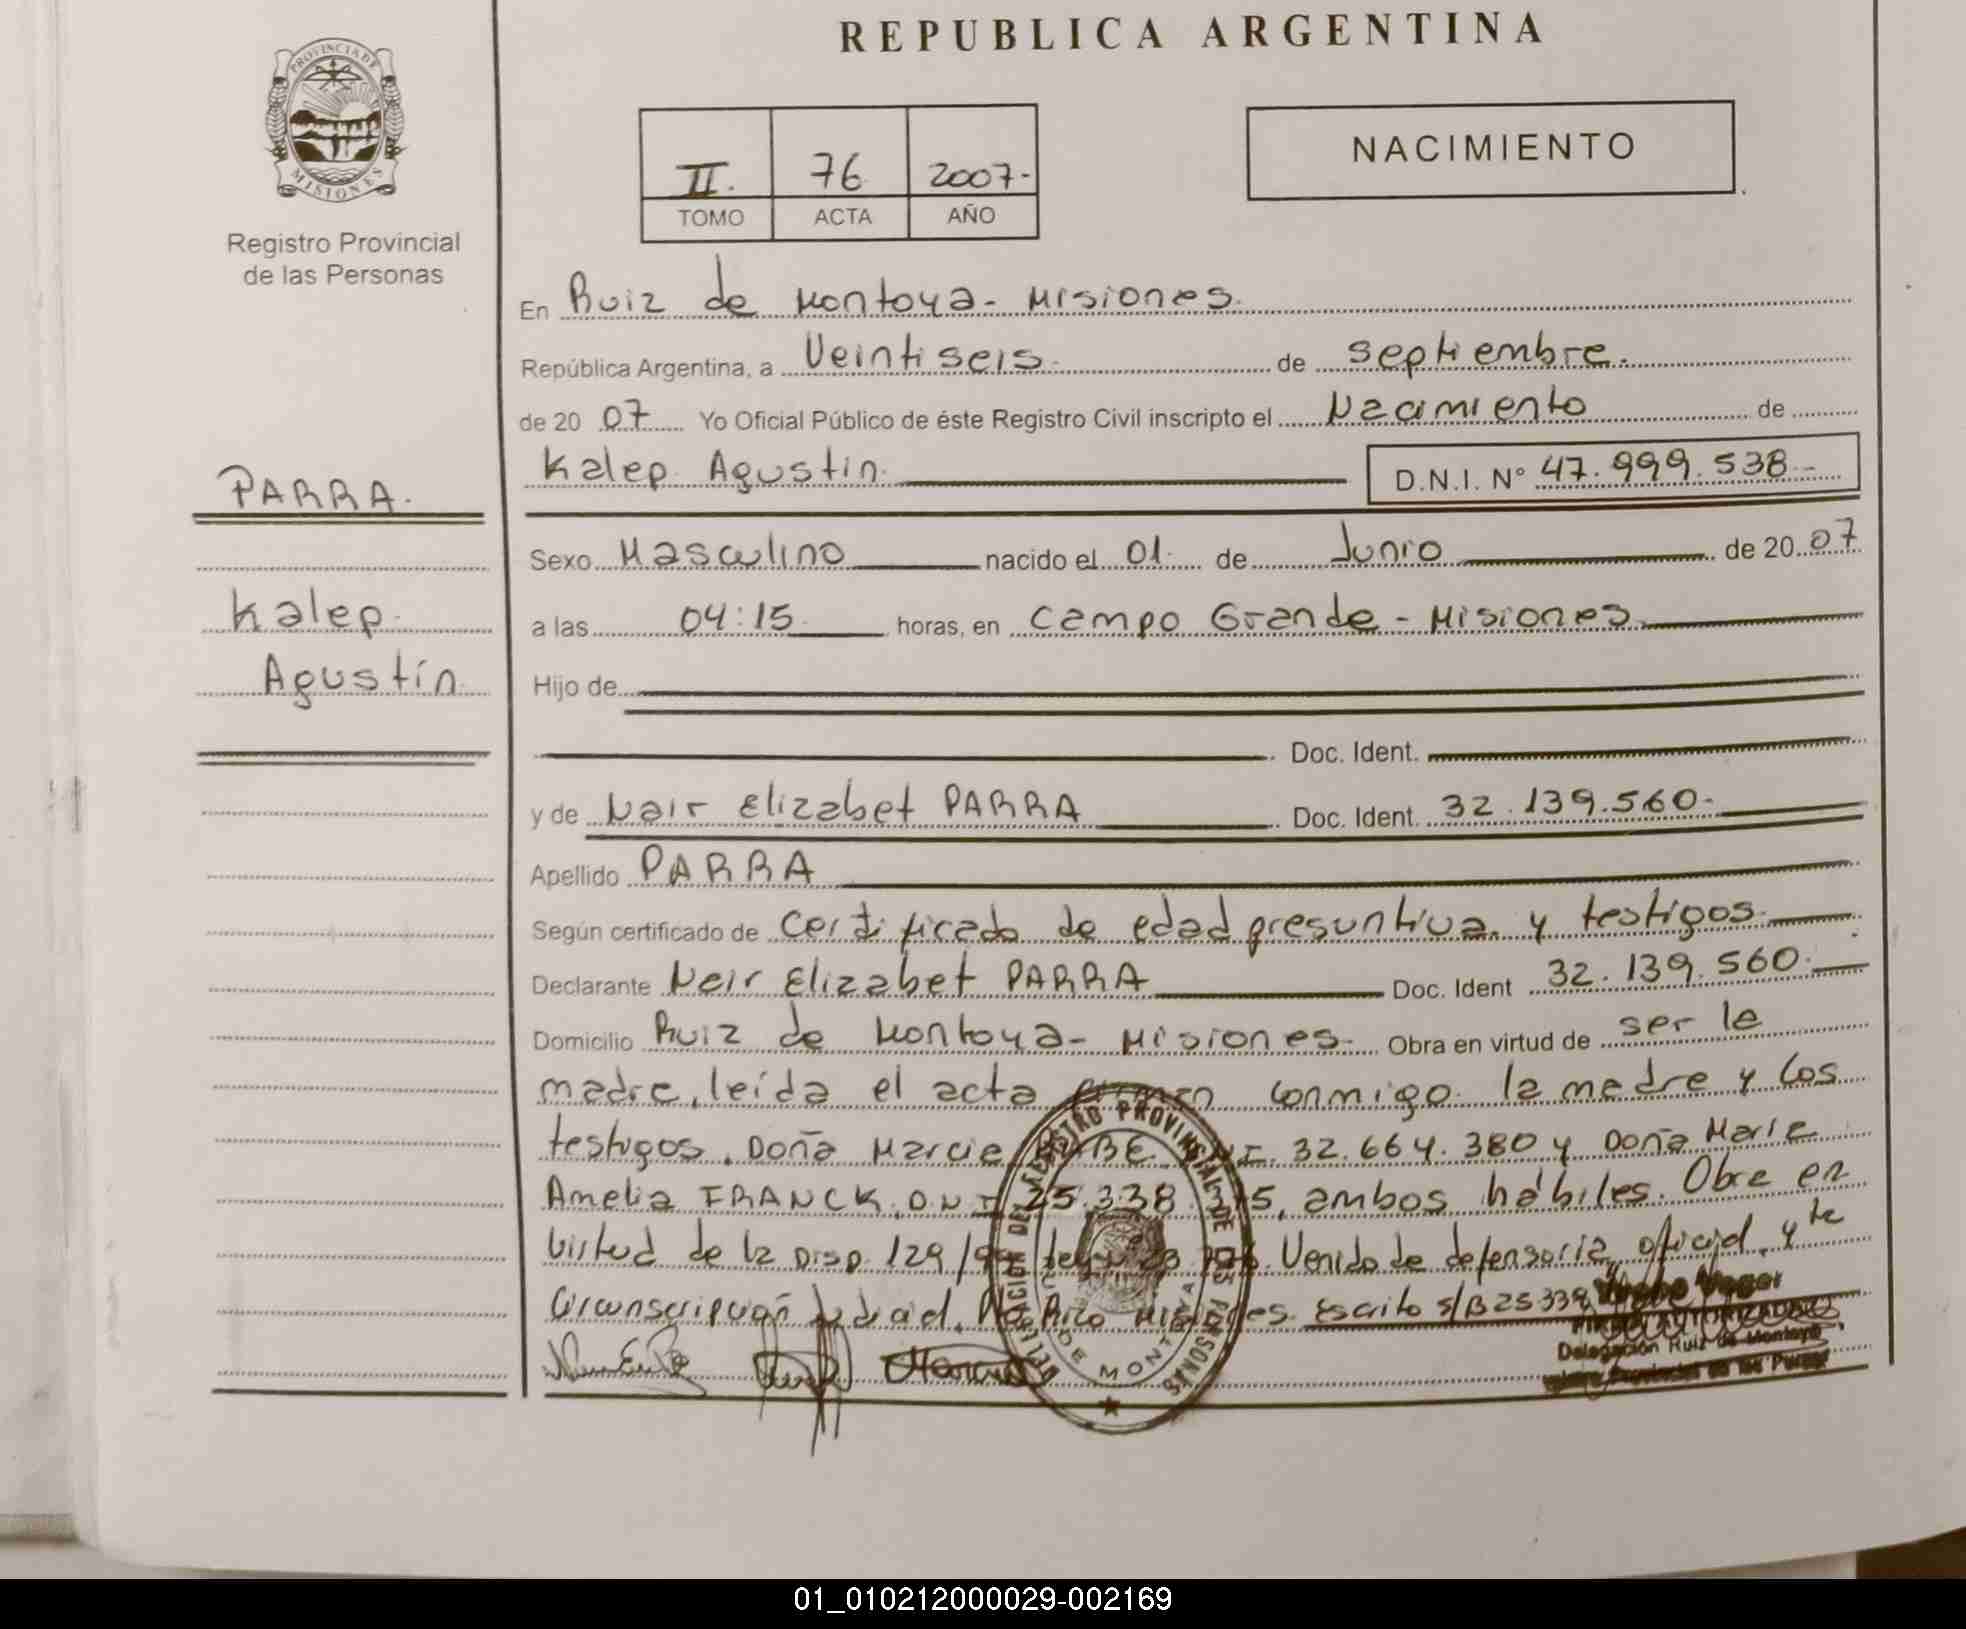 REPUBLICA ARGENTINA
PROVINCIA DE MISIONES
Registro Provincial
de las Personas
II. 76 2007-
TOMO ACTA AÑO
NACIMIENTO
En Ruiz de Montoya - Misiones.
República Argentina, a Veintiseis de septiembre.
de 20 07 Yo Oficial Público de éste Registro Civil inscripto el Nacimiento de
Kalep Agustin. D.N.I. N° 47.999.538.-
PARRA.
Kalep
Agustín
Sexo Masculino nacido el 01 de Junio de 20 07
a las 04:15 horas, en Campo Grande - Misiones
Hijo de
Doc. Ident.
y de Nair Elizabet PARRA Doc. Ident. 32.139.560.-
Apellido PARRA
Según certificado de Certificado de edad presuntiva y testigos.
Declarante Nair Elizabet PARRA Doc. Ident 32.139.560.
Domicilio Ruiz de Montoya - Misiones. Obra en virtud de ser la
madre, leída el acta conmigo la madre y los
testigos, Doña Marcia 32.664.380 y Doña Maria
Amelia FRANCK, D.N.I 25.338. ambos hábiles. Obra en
virtud de la Disp. 129/ Venido de defensoría oficial, 4 ta
Circunscripción Judicial, Misiones. escrito s/B25339
DELEGACION DEL REGISTRO PROVINCIAL DE LAS PERSONAS
DE MONTOYA
FIRMA AUTORIZADA
Delegación Ruiz de Montoya
01_010212000029-002169